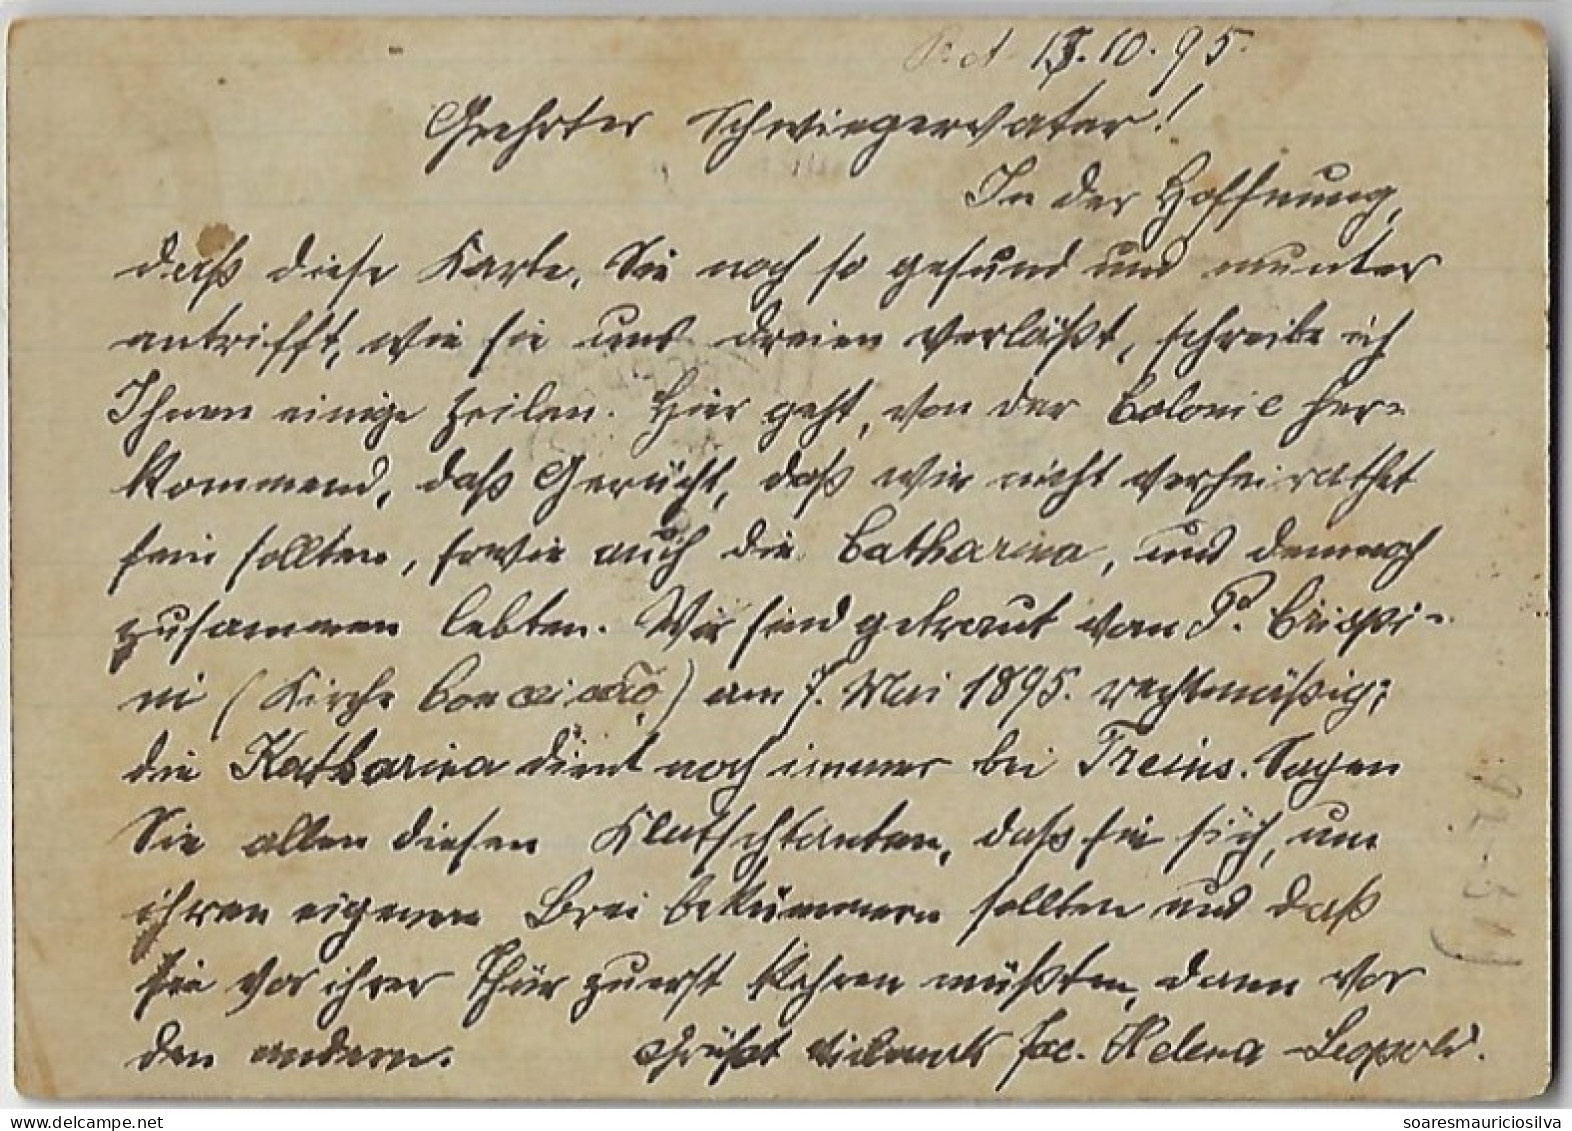 P. A. 13.10.95.
Geehrter Schwiegervater!
In der Hoffnung,
daß diese Karte, Sie noch so gesund und munter
antrifft, wie sie uns dreien verläßt, schreibe ich
Ihnen einige Zeilen. Hier geht, von der Colonie her-
kommend, daß Gerücht, daß wir nicht verheirathet
sein sollten, sowie auch die Catharina, und dennoch
zusammen lebten. Wir sind getraut vom P. Crispi-
ni (Kirche Conceicão) am 7. Mai 1895. rechtmäßig;
die Katharina dient noch immer bei Treins. Sagen
Sie allen diesen Klatschtanten, daß sie sich, um
ihren eigenen Brei bekümmern sollten und daß
sie vor ihrer Thür zuerst kehren müßten, dann vor
den andern. Grüßt vielmals Jac. Helena-Leopold.
soaresmauriciosilva